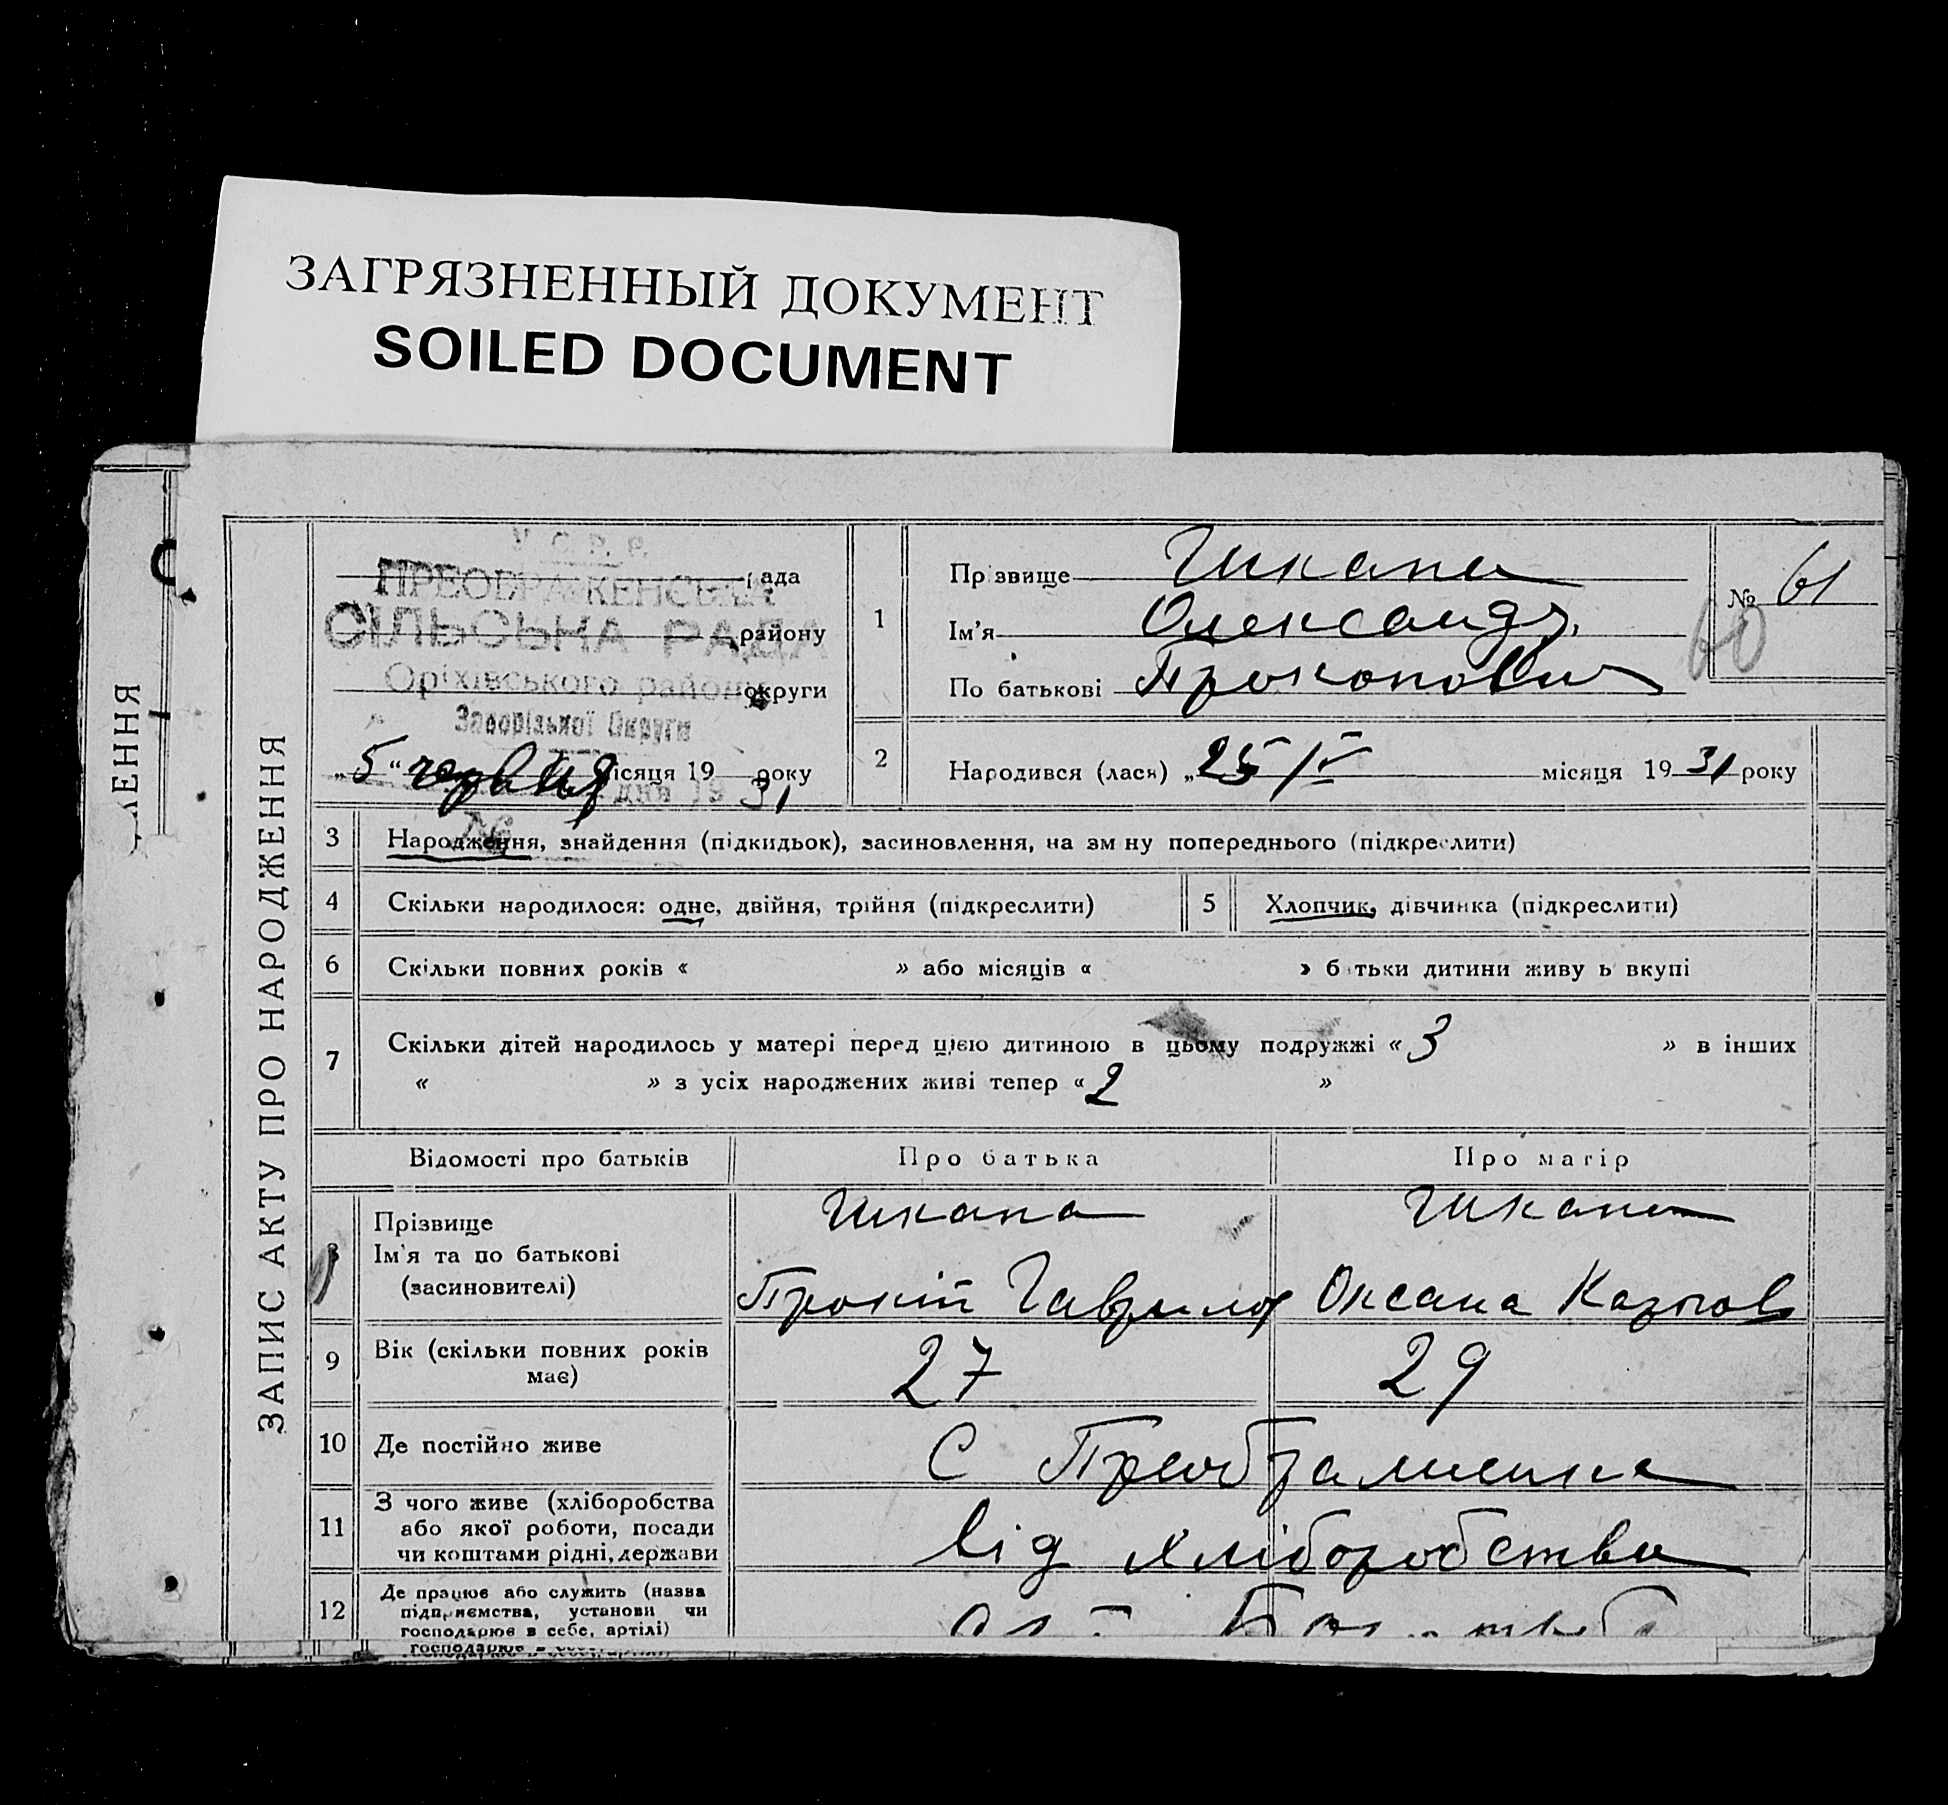 ЗАГРЯЗНЕННЫЙ ДОКУМЕНТ
SOILED DOCUMENT
ЛЕННЯ
ЗАПИС АКТУ ПРО НАРОДЖЕННЯ
У. С. Р. Р.
ПРЕОБРАЖЕНСЬКА
рада
СІЛЬСЬКА РАДА
району
Оріхівського району
округи
Запорізької Округи
„5“ червня місяця 19 31 року
1
Прізвище Шкапа
Ім'я Олександр.
По батькові Прокопович
№ 61
60
2
Народився (лася) „25 / IV місяця 19 31 року
3 Народження, знайдення (підкидьок), засиновлення, на зміну попереднього (підкреслити)
4 Скільки народилося: одне, двійня, трійня (підкреслити)
5 Хлопчик, дівчинка (підкреслити)
6 Скільки повних років « » або місяців « » батьки дитини живуть вкупі
7 Скільки дітей народилось у матері перед цією дитиною в цьому подружжі « 3 » в інших
« » з усіх народжених живі тепер « 2 »
Відомості про батьків Про батька Про матір
8 Прізвище
Ім'я та по батькові
(засиновителі)
Шкапа Шкапа
Прокіп Гаврилов Оксана
9 Вік (скільки повних років
має)
27 29
10 Де постійно живе
С Преображенка
11 З чого живе (хліборобства
або якої роботи, посади
чи коштами рідні, держави
Від хліборобства
12 Де працює або служить (назва
підприємства, установи чи
господарює в себе, артілі)
господарює в себе,